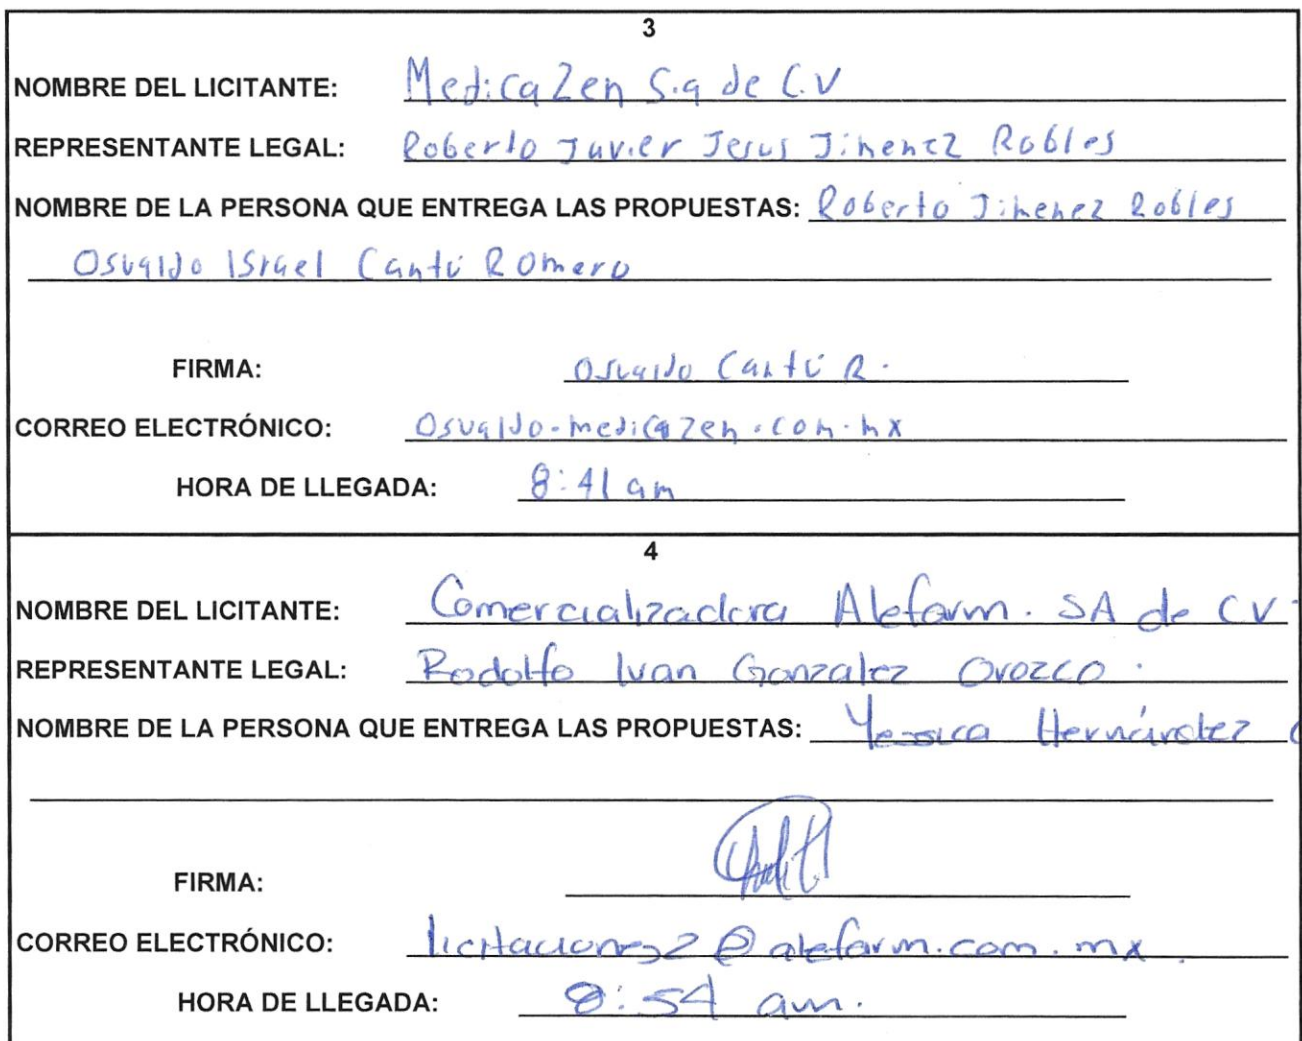 3
NOMBRE DEL LICITANTE: MedicaZen S.a de C.V
REPRESENTANTE LEGAL: Roberto Javier Jesus Jimenez Robles
NOMBRE DE LA PERSONA QUE ENTREGA LAS PROPUESTAS: Roberto Jimenez Robles
Osvaldo Israel Cantú Romero
FIRMA: Osvaldo Cantú R.
CORREO ELECTRÓNICO: Osvaldo-medicazen.com.mx
HORA DE LLEGADA: 8:41 am
4
NOMBRE DEL LICITANTE: Comercializadora Alefarm. SA de CV.
REPRESENTANTE LEGAL: Rodolfo Ivan Gonzalez Orozco.
NOMBRE DE LA PERSONA QUE ENTREGA LAS PROPUESTAS: Yessica Hernández
FIRMA:
CORREO ELECTRÓNICO: licitaciones2@alefarm.com.mx.
HORA DE LLEGADA: 8:54 am.